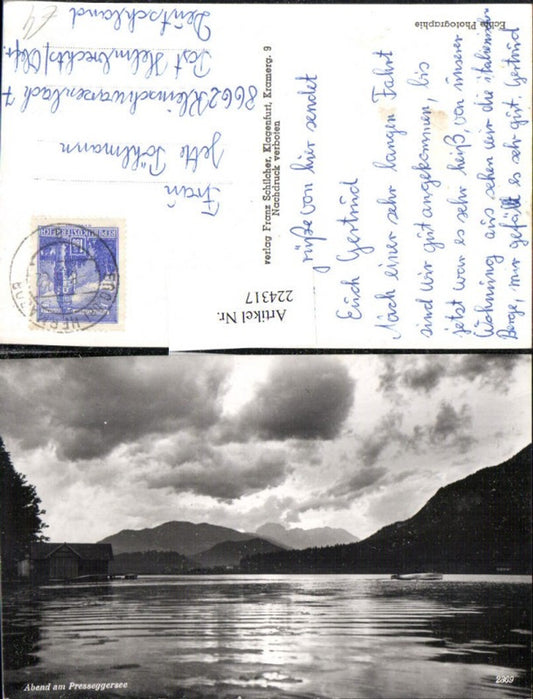 Echte Photographie
Grüße von hier sendet
Euch Gertrud
Nach einer sehr langen Fahrt
sind wir gut angekommen, bis
jetzt war es sehr heiß, von unserer
Wohnung aus sehen wir die italienischen
Berge, mir gefällt es sehr gut. Gertrud
Verlag Franz Schilcher, Klagenfurt, Kramerg. 9
Nachdruck verboten
Artikel Nr.
224317
REPUBLIK ÖSTERREICH
Frau
Jette Pöhlmann
8662 Kleinschwarzenbach 7
Post Helmbrechts/Ofr.
Deutschland
Abend am Presseggersee
2909